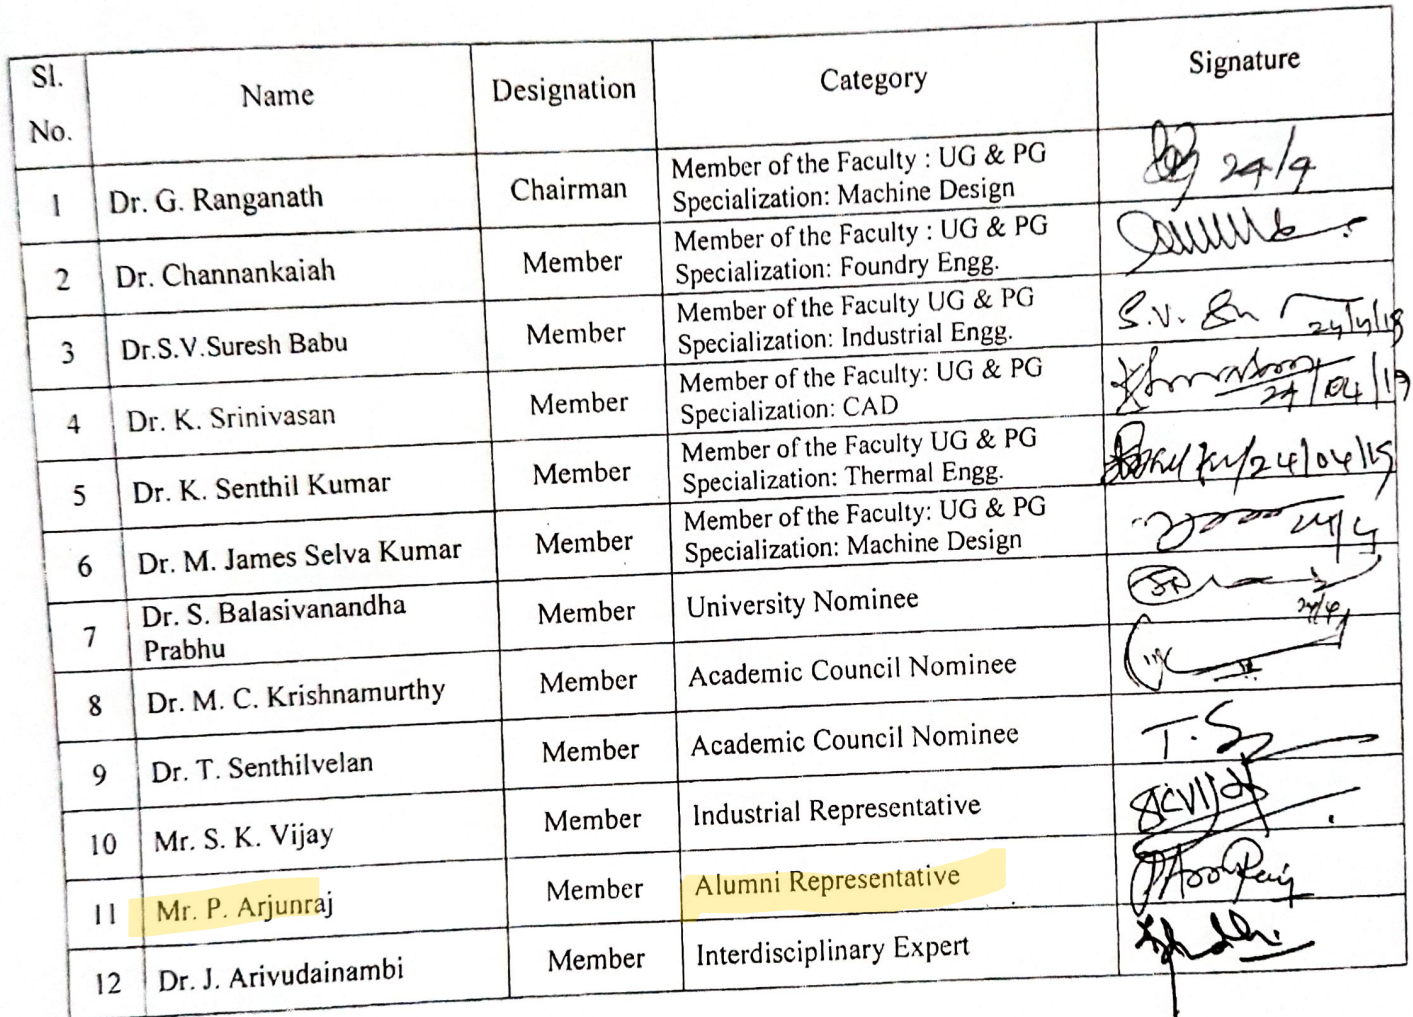 Sl. No. Name Designation Category Signature
1 Dr. G. Ranganath Chairman Member of the Faculty : UG & PG
Specialization: Machine Design 24/4
2 Dr. Channankaiah Member Member of the Faculty : UG & PG
Specialization: Foundry Engg.
3 Dr.S.V.Suresh Babu Member Member of the Faculty UG & PG
Specialization: Industrial Engg. S.V.
4 Dr. K. Srinivasan Member Member of the Faculty: UG & PG
Specialization: CAD 24/04/19
5 Dr. K. Senthil Kumar Member Member of the Faculty UG & PG
Specialization: Thermal Engg. 24/04/19
6 Dr. M. James Selva Kumar Member Member of the Faculty: UG & PG
Specialization: Machine Design 24/4
7 Dr. S. Balasivanandha
Prabhu Member University Nominee 24/4
8 Dr. M. C. Krishnamurthy Member Academic Council Nominee
9 Dr. T. Senthilvelan Member Academic Council Nominee T.S
10 Mr. S. K. Vijay Member Industrial Representative
11 Mr. P. Arjunraj Member Alumni Representative
12 Dr. J. Arivudainambi Member Interdisciplinary Expert